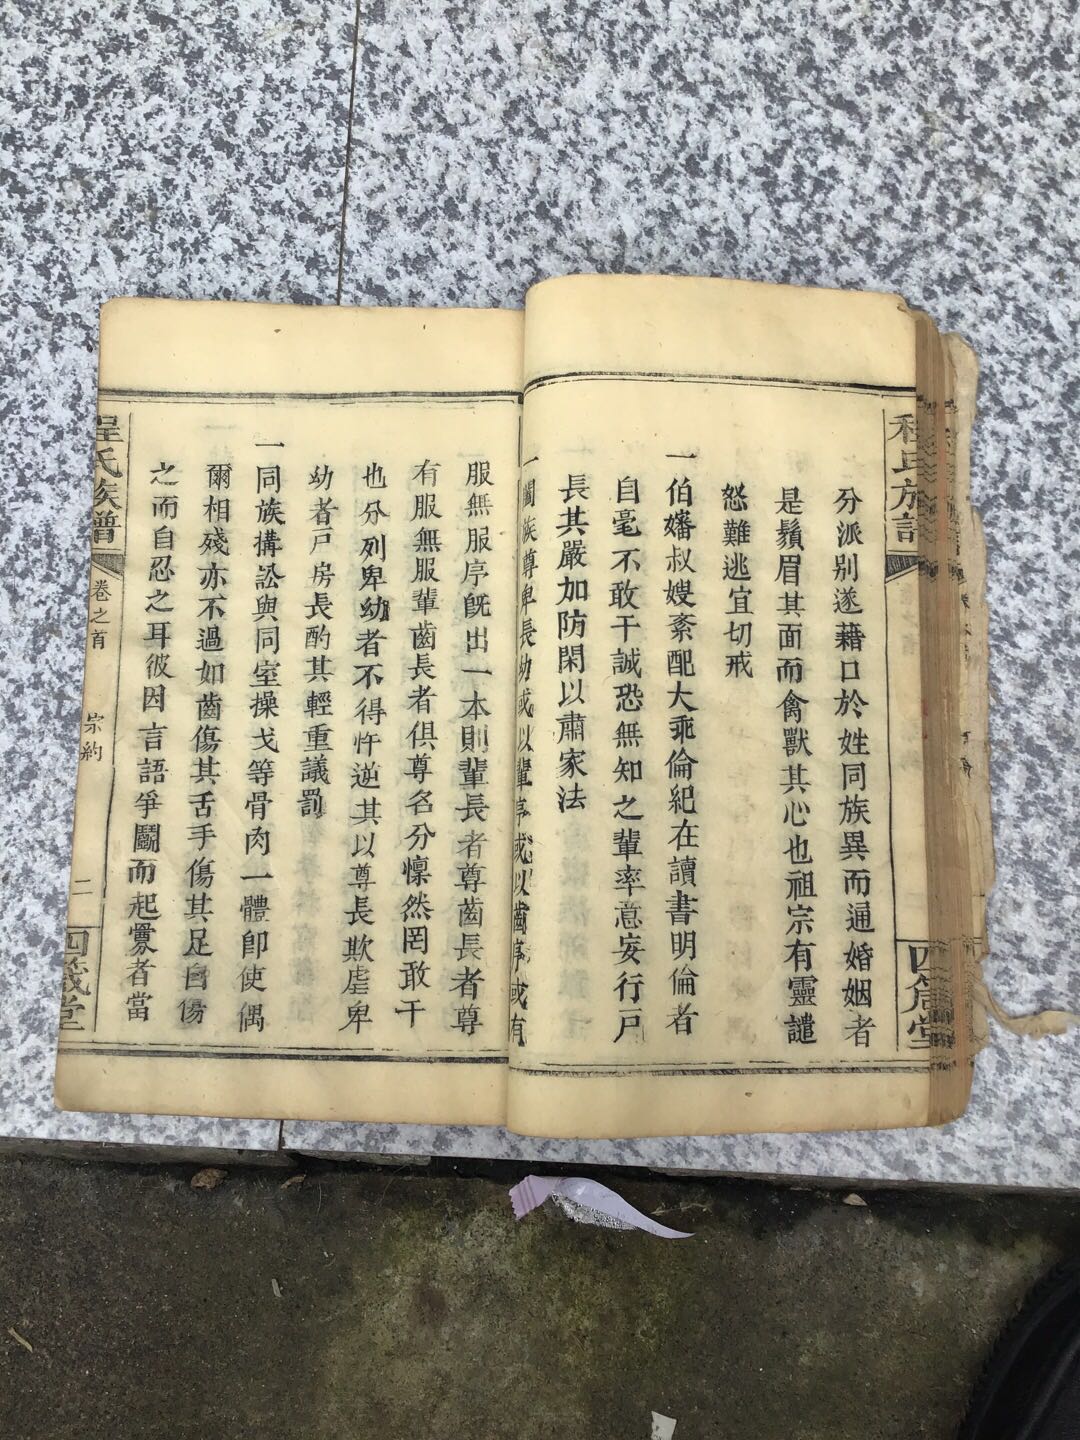 程氏族譜
分派别遂藉口於姓同族異而通婚姻者
是鬚眉其面而禽獸其心也祖宗有靈譴
怒難逃宜切戒
一伯嬸叔嫂紊配大乖倫紀在讀書明倫者
自毫不敢干誠恐無知之輩率意妄行戸
長其嚴加防閑以肅家法
一闔族尊卑長幼或以輩序或以齒序或有
服無服序旣出一本則輩長者尊齒長者尊
有服無服輩齒長者俱尊名分懍然罔敢干
也分列卑幼者不得忤逆其以尊長欺虐卑
幼者戸房長酌其輕重議罰
一同族搆訟與同室操戈等骨肉一體卽使偶
爾相殘亦不過如齒傷其舌手傷其足自傷
之而自忍之耳彼因言語爭鬭而起釁者當
程氏族譜
卷之首
宗約
二
四箴堂